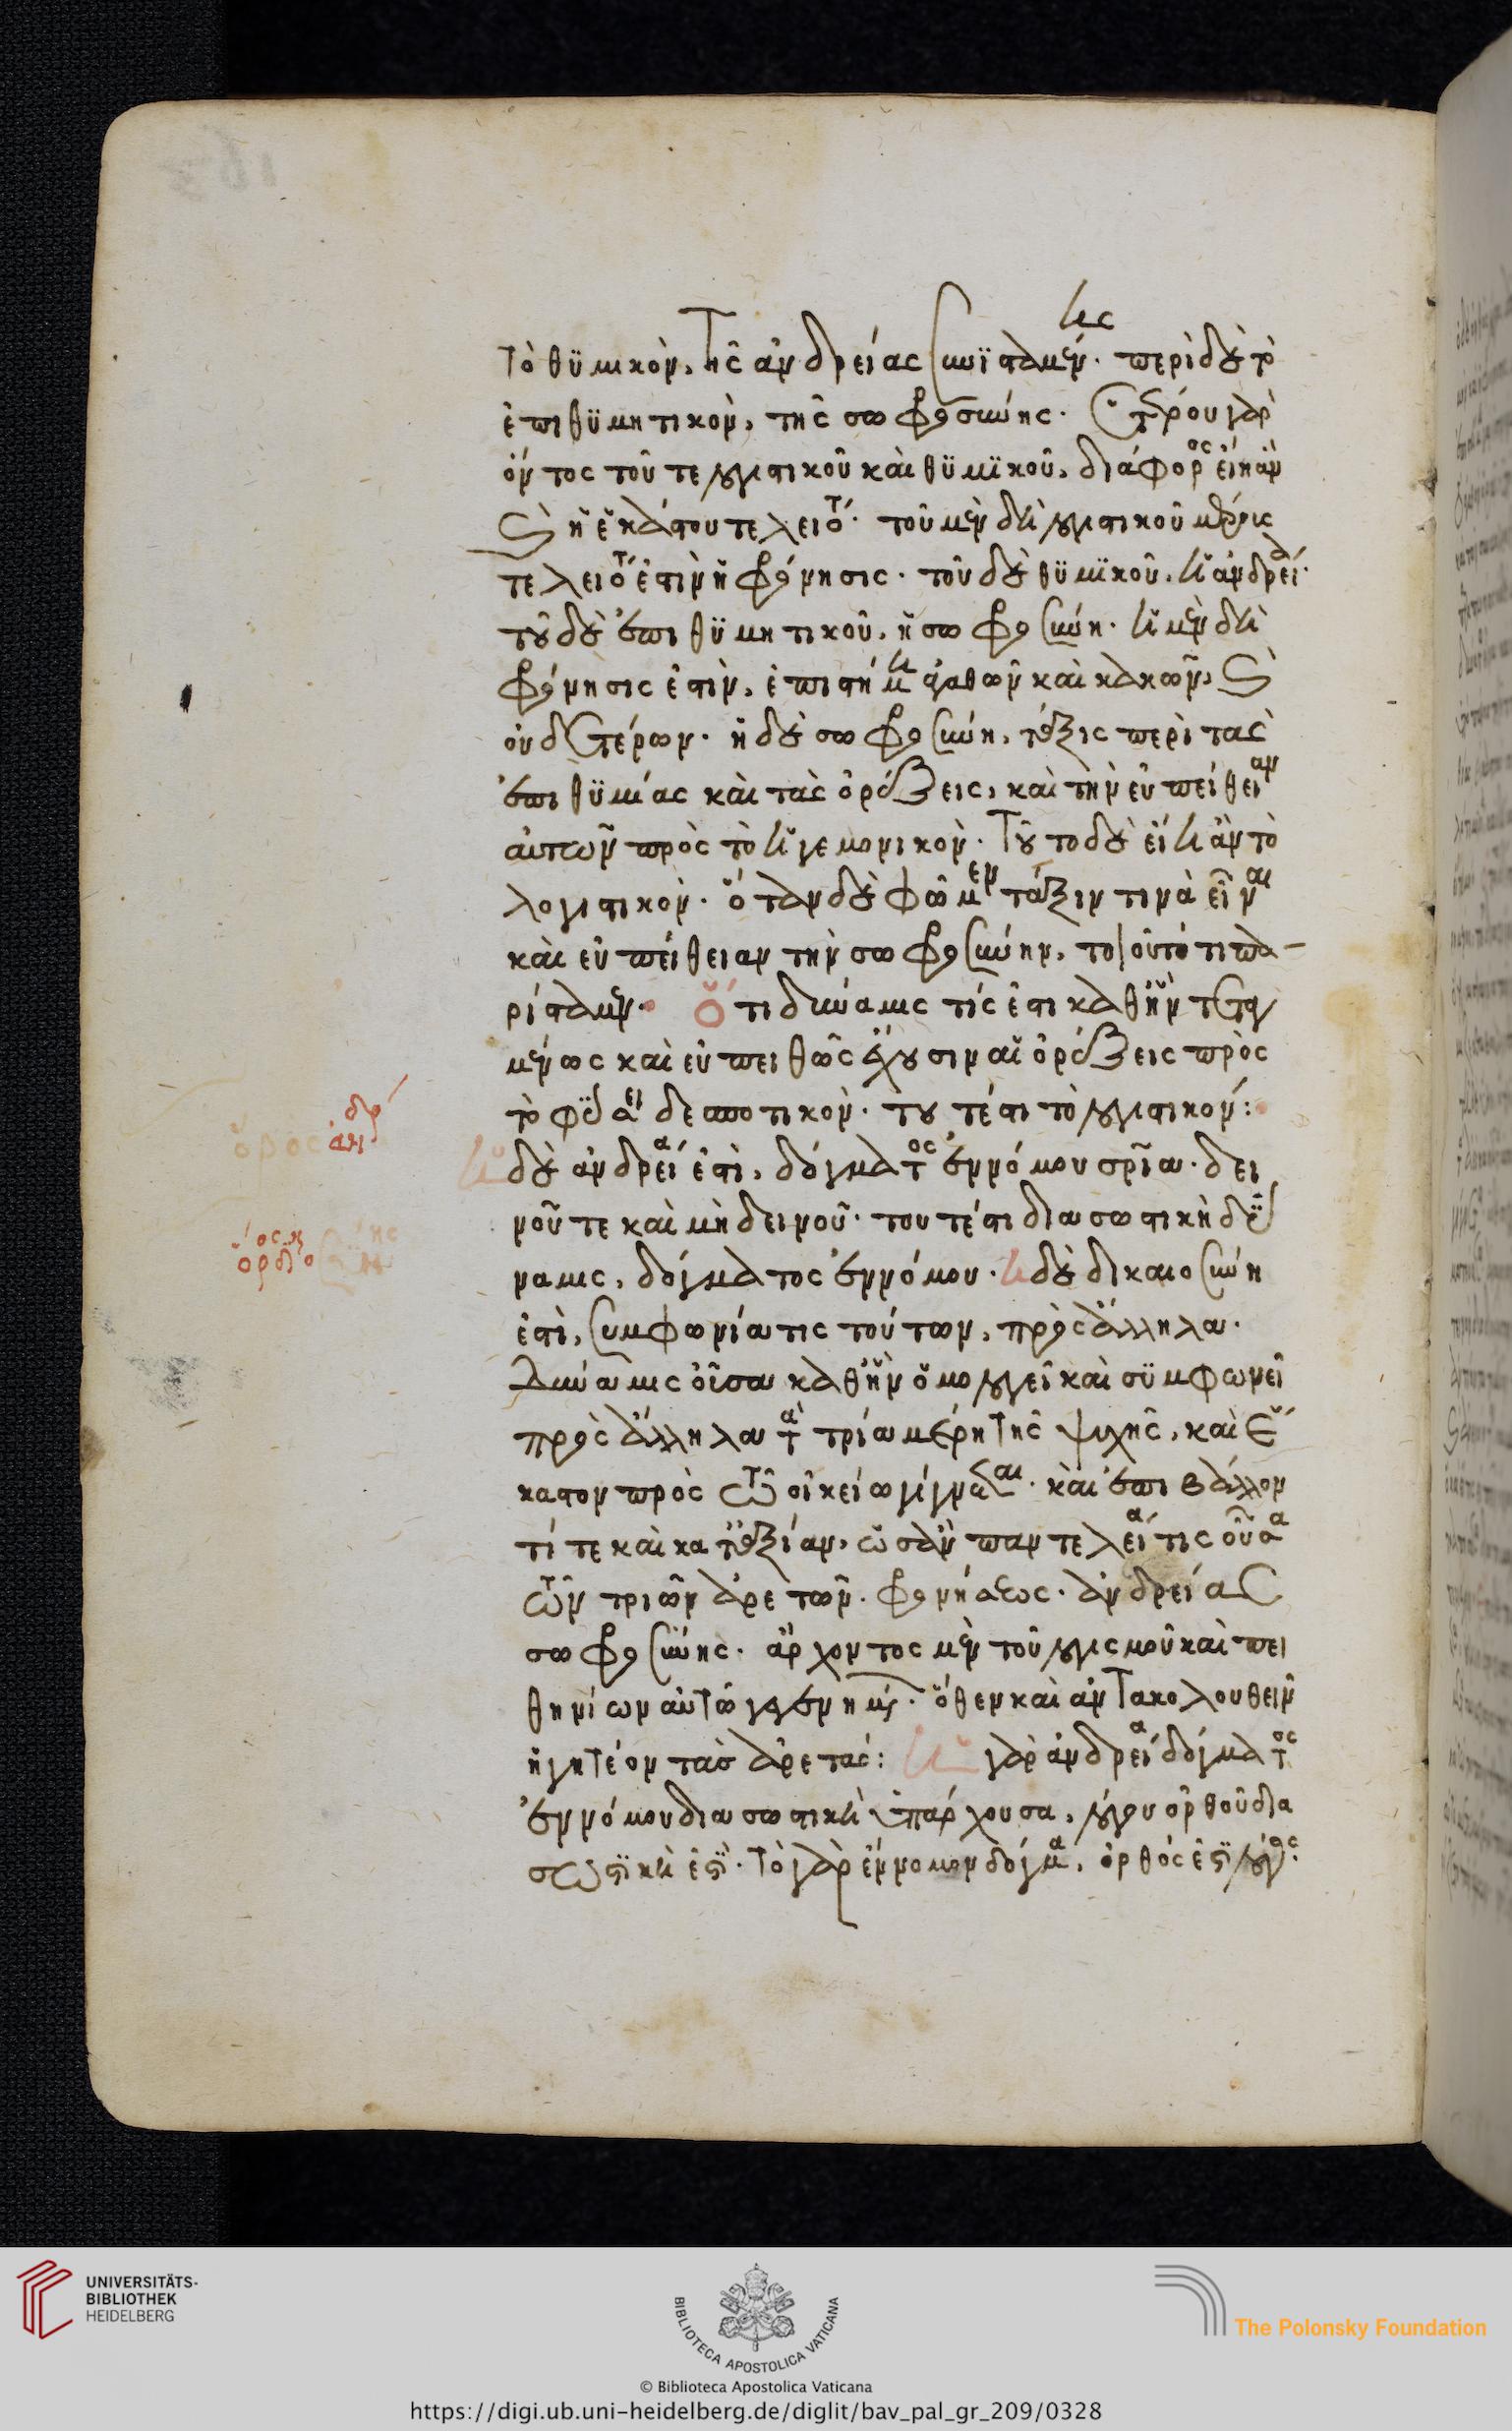 τὸ θϋμικὸν, τῆς ἀνδρείας συνϊσταμένης. περὶ δὲ τὸ
ἐπιθϋμητικὸν, τῆς σωφροσύνης. Ἑτέρου γὰρ
ὄντος τοῦ τε λογιστικοῦ καὶ θϋμϊκοῦ, διάφορος εἴη ἂν
καὶ ἡ ἑκάστου τελειότης. τοῦ μὲν δὴ λογιστικοῦ μέρους
τελειότης ἐστὶν ἡ φρόνησις. τοῦ δὲ θϋμϊκοῦ, ἡ ἀνδρεία.
τοῦ δὲ ἐπιθϋμητικοῦ, ἡ σωφροσύνη. ἡ μὲν δὴ
φρόνησις ἐστὶν, ἐπιστήμη ἀγαθῶν καὶ κακῶν, καὶ
οὐδετέρων. ἡ δὲ σωφροσύνη, τάξις περὶ τὰς
ἐπιθϋμίας καὶ τὰς ὀρέξεις, καὶ τὴν εὐπείθειαν
αὐτῶν πρὸς τὸ ἡγεμονικὸν. Τοῦτο δὲ εἴη ἂν τὸ
λογιστικὸν. ὅταν δὲ φῶμεν τάξιν τινὰ εἶναι
καὶ εὐπείθειαν τὴν σωφροσύνην, τοιοῦτό τι πα-
ρίσταμεν. Ὅτι δύναμις τίς ἐστι καθ ἣν τεταγ
μένως καὶ εὐπειθῶς ἔχουσιν αἱ ὀρέξεις πρὸς
τὸ φύσει δεσποτικὸν. τουτέστι τὸ λογιστικόν:
ὅρος ἀνδρείας
Ἡ δὲ ἀνδρεία ἐστὶ, δόγματος ἐννόμου σωτηρία. δει
νοῦ τε καὶ μὴ δεινοῦ. τουτέστι διασωστικὴ δύ
ναμις, δόγματος ἐννόμου. Ἡ δὲ δικαιοσύνη
ὅρος δικαιοσύνης
ἐστὶ, συμφωνία τις τούτων, πρὸς ἄλληλα.
Δύναμις οὖσα καθ ἣν ὁμολογεῖ καὶ σϋμφωνεῖ
πρὸς ἄλληλα τὰ τρία μέρη τῆς ψυχῆς, καὶ ἕ
καστον πρὸς τῷ οἰκείῳ γίγνεσθαι. καὶ ἐπιβάλλον
τί τε καὶ κατ ἀξίαν, ὡσὰν παντελεία τις οὖσα
τῶν τριῶν ἀρετῶν. φρονήσεως. ἀνδρείας
σωφροσύνης. ἄρχοντος μὲν τοῦ λογισμοῦ καὶ πει
θηνίων αὐτῷ γεγενημένων. ὅθεν καὶ ἀντακολουθεῖν
ἡγητέον τὰς ἀρετάς: Ἡ γὰρ ἀνδρεία δόγματος
ἐννόμου διασωστικὴ ὑπάρχουσα, λόγου ὀρθοῦ δια
σωστϊκὴ ἐστϊ. Τὸ γὰρ ἔννομον δόγμα, ὀρθός ἐστϊ λόγος.
UNIVERSITÄTS-
BIBLIOTHEK
HEIDELBERG
BIBLIOTECA APOSTOLICA VATICANA
The Polonsky Foundation
© Biblioteca Apostolica Vaticana
https://digi.ub.uni-heidelberg.de/diglit/bav_pal_gr_209/0328